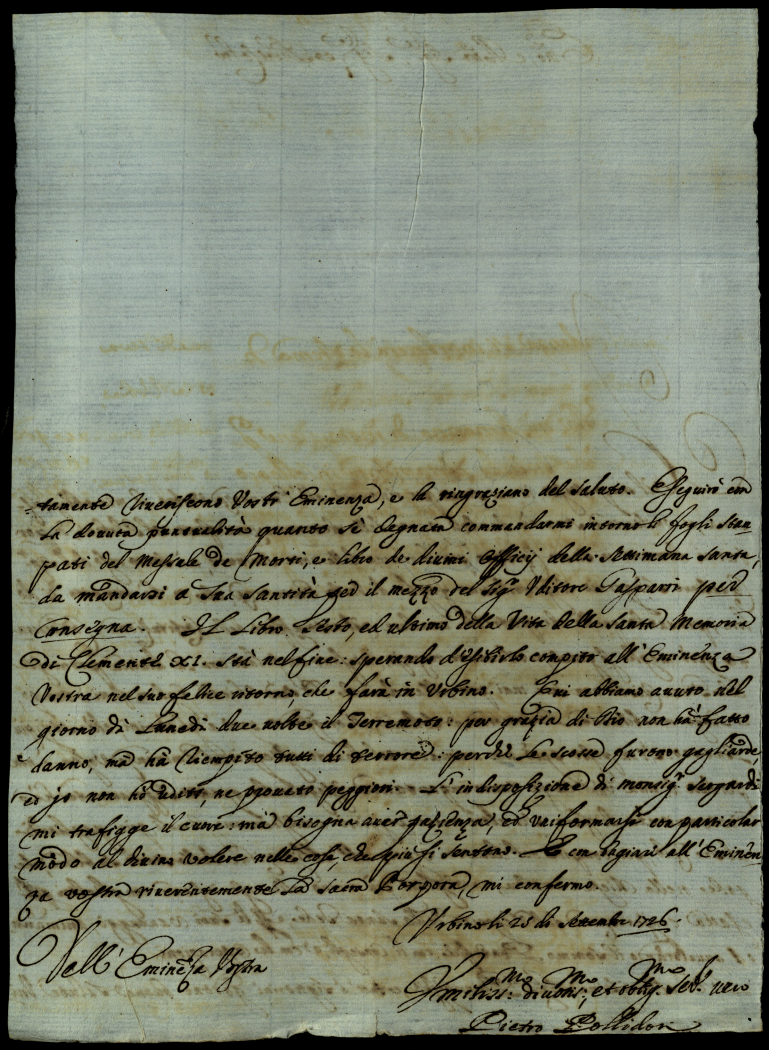 -tamente riveriscono Vostr' Eminenza, e la ringraziano del saluto. Eseguirò con
la dovuta puntualità quanto si è degnata commandarmi intorno li fogli stam-
pati del Messale de Morti, e libro de divini Officij della Settimana Santa,
da mandarsi a Sua Santità per il mezzo del Sig.r Uditore Gasparri per
consegna. Il Libro Sesto, ed ultimo della Vita della Santa Memoria
di Clemente XI. stà nel fine: sperando d'esibirlo compito all'Eminenza
Vostra nel suo felice ritorno, che farà in Urbino. Qui abbiamo avuto nel
giorno di Lunedì due volte il Terremoto: per grazia di Dio non hà fatto
danno, mà hà riempito tutti di terrore: perché le scosse furono gagliarde,
ed io non hò udito, ne provato peggiori. L'indisposizione di monsig.r Sergardi
mi trafigge il cuore: mà bisogna aver pazienza, ed uniformarsi con particolar
modo al divino volere nelle cose, che più si sentono. E con baciar all'Eminen-
za vostra riverentemente la Sacra Porpora, mi confermo.
Urbino li 25 di Settembre 1726.
Dell' Eminenza Vostra
Umiliss.mo divotis.mo, et oblig.mo Ser.
Pietro Pollidori